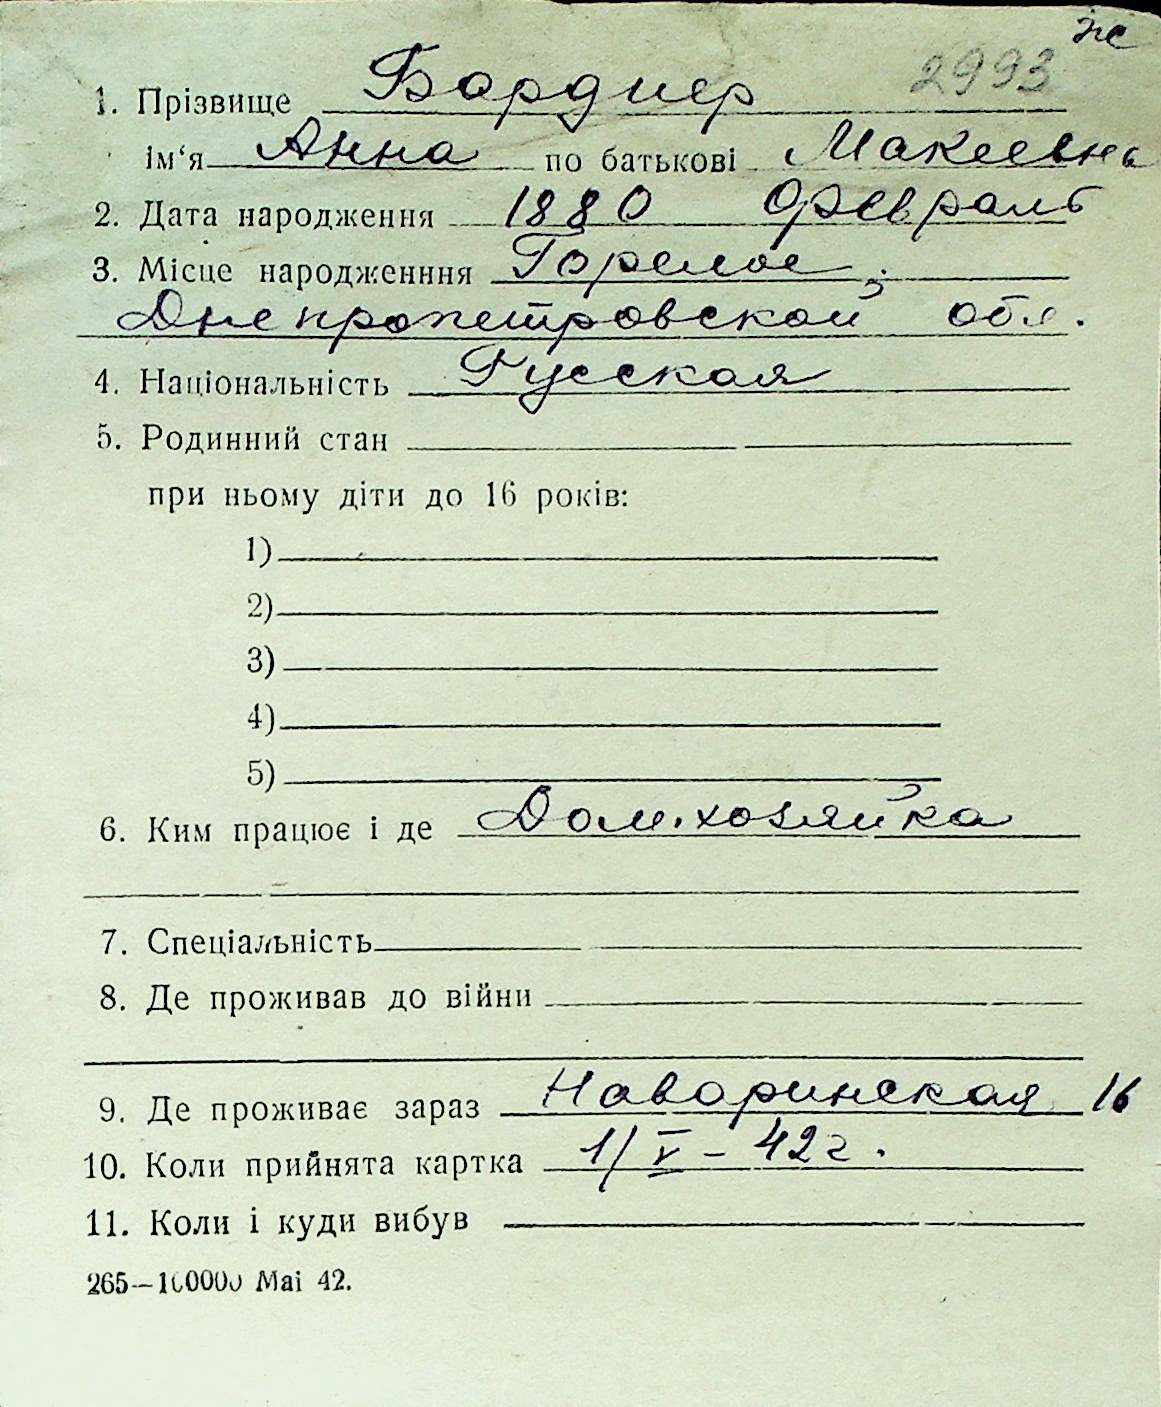 же
2993
1. Прізвище Бордцер
ім‘я Анна по батькові Макеевна
2. Дата народження 1880 февраль
3. Місце народженння Горелое
Днепропетровской обл.
4. Національність Русская
5. Родинний стан
при ньому діти до 16 років:
1)
2)
3)
4)
5)
6. Ким працює і де Дом.хозяйка
7. Спеціальність
8. Де проживав до війни
9. Де проживає зараз Наваринская 16
10. Коли прийнята картка 1/V – 42 г.
11. Коли і куди вибув
265—100000 Маі 42.